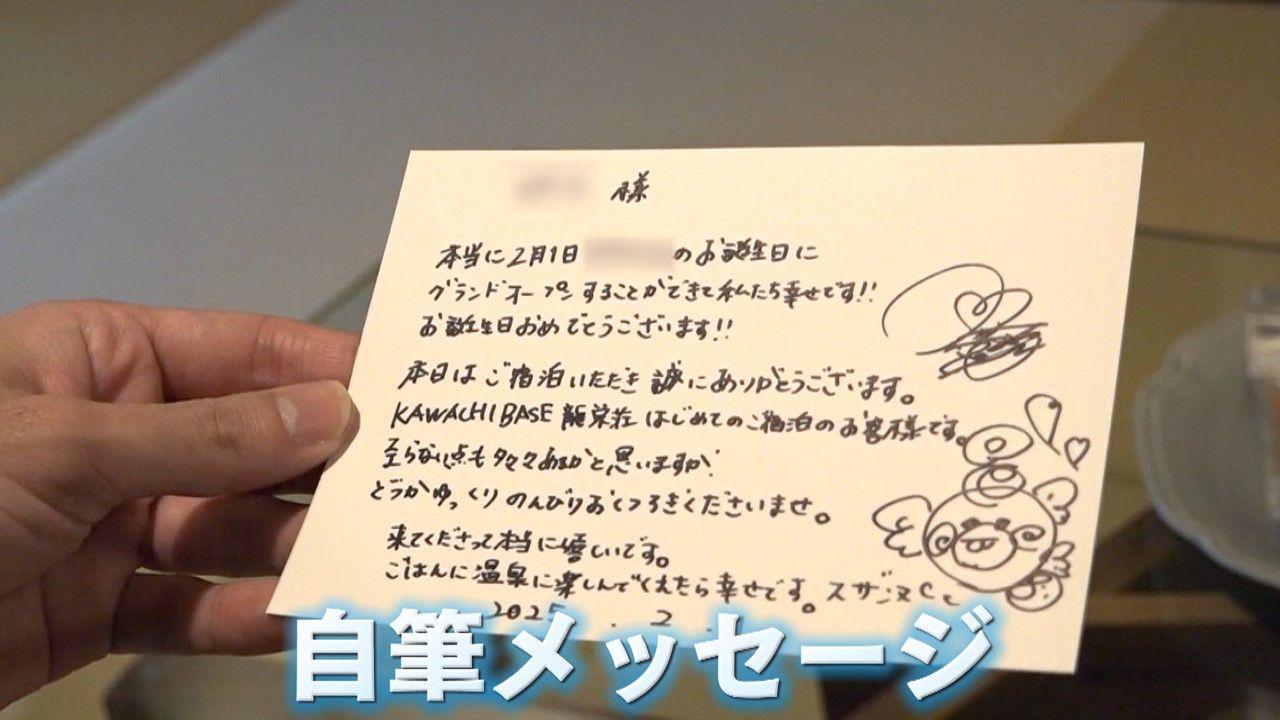 様
本当に2月1日 のお誕生日に
グランドオープンすることができて私たち幸せです!!
お誕生日おめでとうございます!!
本日はご宿泊いただき誠にありがとうございます。
KAWACHI BASE 龍栄荘 はじめてのご宿泊のお客様です。
至らない点も多々あるかと思いますが
どうかゆっくりのんびりおくつろぎくださいませ。
来てくださって本当に嬉しいです。
ごはんに温泉に楽しんでくれたら幸せです。スザンヌ
2025 . 2 .
自筆メッセージ